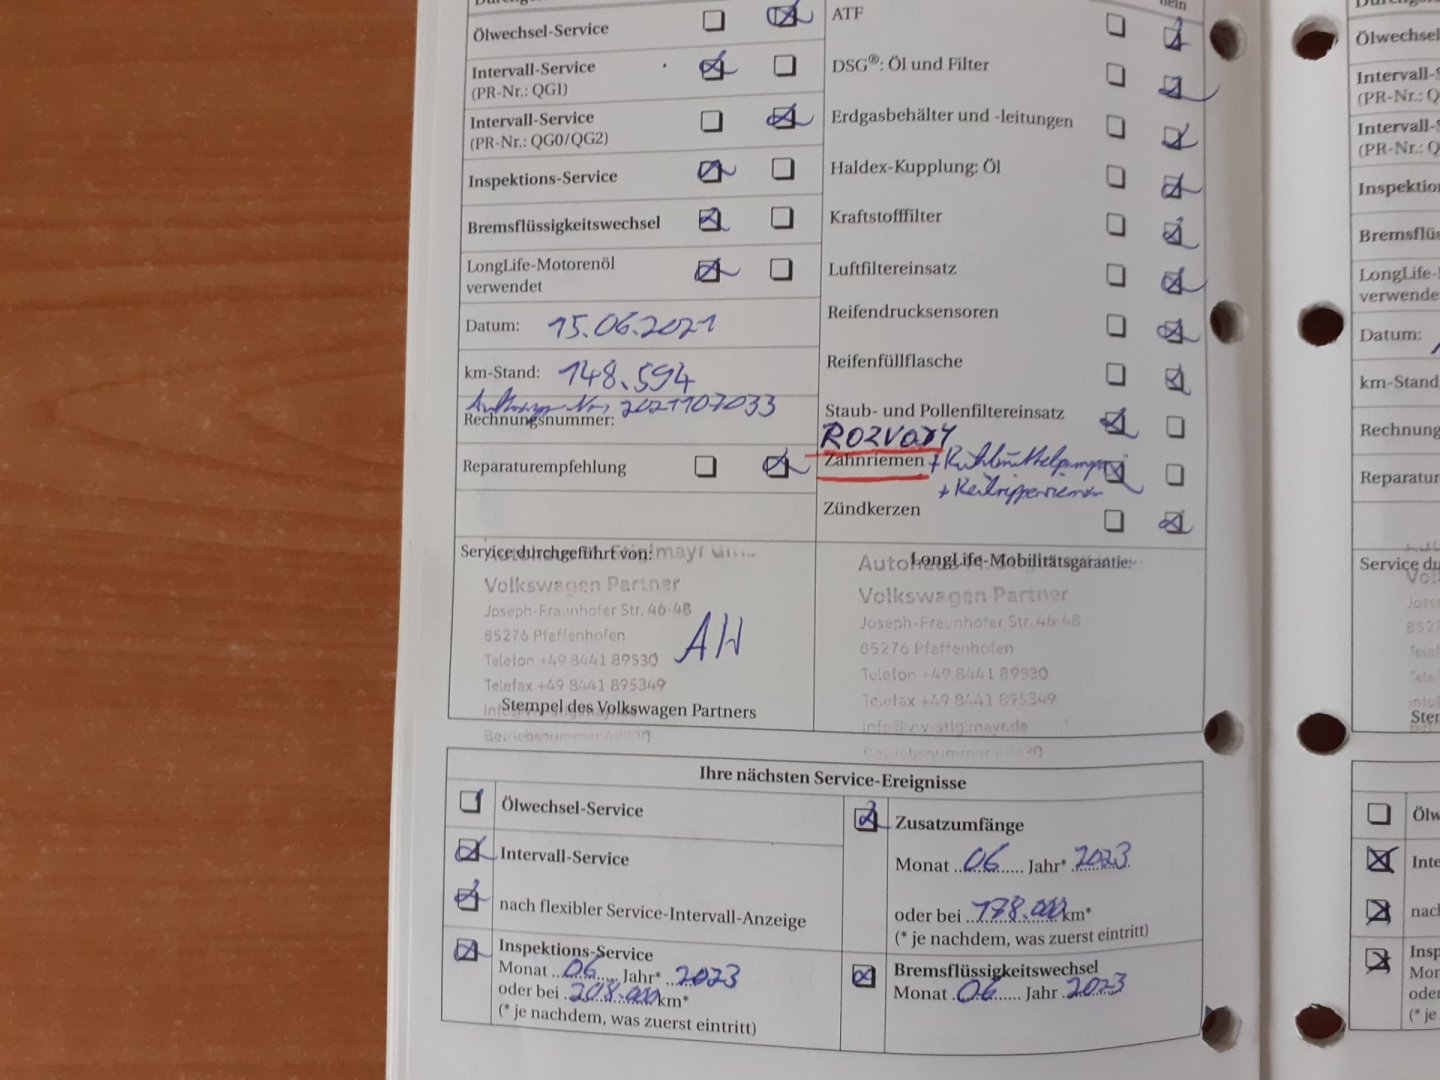 Ölwechsel-Service
Intervall-Service
(PR-Nr.: QG1)
Intervall-Service
(PR-Nr.: QG0/QG2)
Inspektions-Service
Bremsflüssigkeitswechsel
LongLife-Motorenöl
verwendet
Datum: 15.06.2021
km-Stand: 148.594
2021107033
Rechnungsnummer:
Reparaturempfehlung
nein
ATF
DSG®: Öl und Filter
Erdgasbehälter und -leitungen
Haldex-Kupplung: Öl
Kraftstofffilter
Luftfiltereinsatz
Reifendrucksensoren
Reifenfüllflasche
Staub- und Pollenfiltereinsatz
ROZVODY
Zahnriemen + Kühlmittelpumpe
+ Keilrippenriemen
Zündkerzen
Service durchgeführt von:
Stiglmayr
Volkswagen Partner
Joseph-Fraunhofer Str. 46-48
85276 Pfaffenhofen
Telefon +49 8441 89530
Telefax +49 8441 895349
AW
Stempel des Volkswagen Partners
Betriebsnummer
LongLife-Mobilitätsgarantie:
Autohaus
Volkswagen Partner
Joseph-Fraunhofer Str. 46-48
85276 Pfaffenhofen
Telefon +49 8441 89530
Telefax +49 8441 895349
info@vw-stiglmayr.de
Betriebsnummer
Ihre nächsten Service-Ereignisse
Ölwechsel-Service
Intervall-Service
nach flexibler Service-Intervall-Anzeige
Inspektions-Service
Monat 06 Jahr* 2023
oder bei 208.000 km*
(* je nachdem, was zuerst eintritt)
Zusatzumfänge
Monat 06 Jahr* 2023
oder bei 178.000 km*
(* je nachdem, was zuerst eintritt)
Bremsflüssigkeitswechsel
Monat 06 Jahr 2023
Ölwechsel
Intervall-S
(PR-Nr.: Q
Intervall-S
(PR-Nr.: Q
Inspektion
Bremsflüs
LongLife-
verwende
Datum:
km-Stand
Rechnung
Reparatur
Service du
Ster
Ölw
Inte
nach
Insp
Mor
oder
(* je